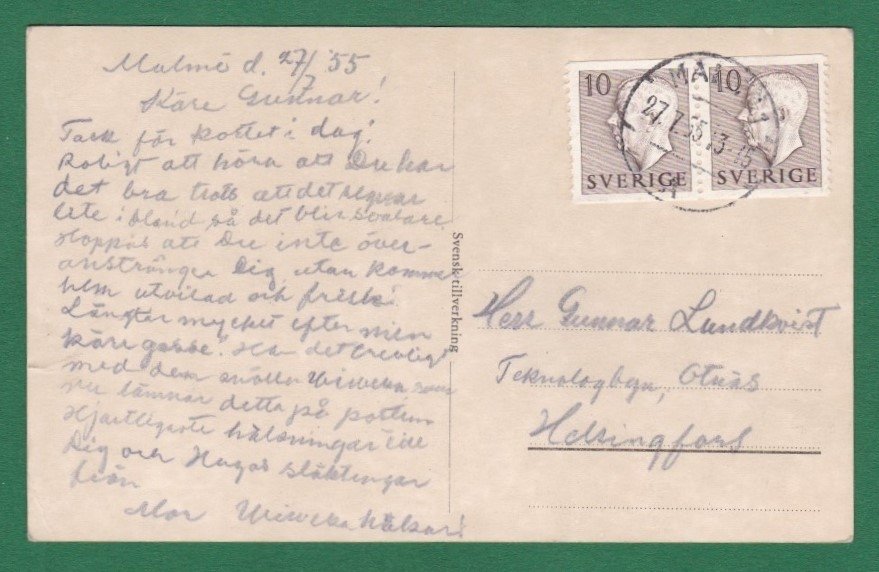 Malmö d. 27/7 55
Käre Gunnar!
Tack för kortet i dag!
Roligt att höra att Du har
det bra trots att det regnar
lite i bland så det blir svalare.
Hoppas att Du inte över-
anstränger Dig, utan kommer
hem utvilad och frisk!
Längtar mycket efter min
"käre gosse". Ha det trevligt
med den snälla Viveka som
nu lämnar detta på posten
Hjärtligaste hälsningar till
Dig och Hugos släktingar
från
Mor Viveka hälsar!
Svensk tillverkning
10 SVERIGE
10 SVERIGE
MALMÖ 1
27.7.55.13-15
Herr Gunnar Lundkvist
Teknologbyn, Otnäs
Helsingfors